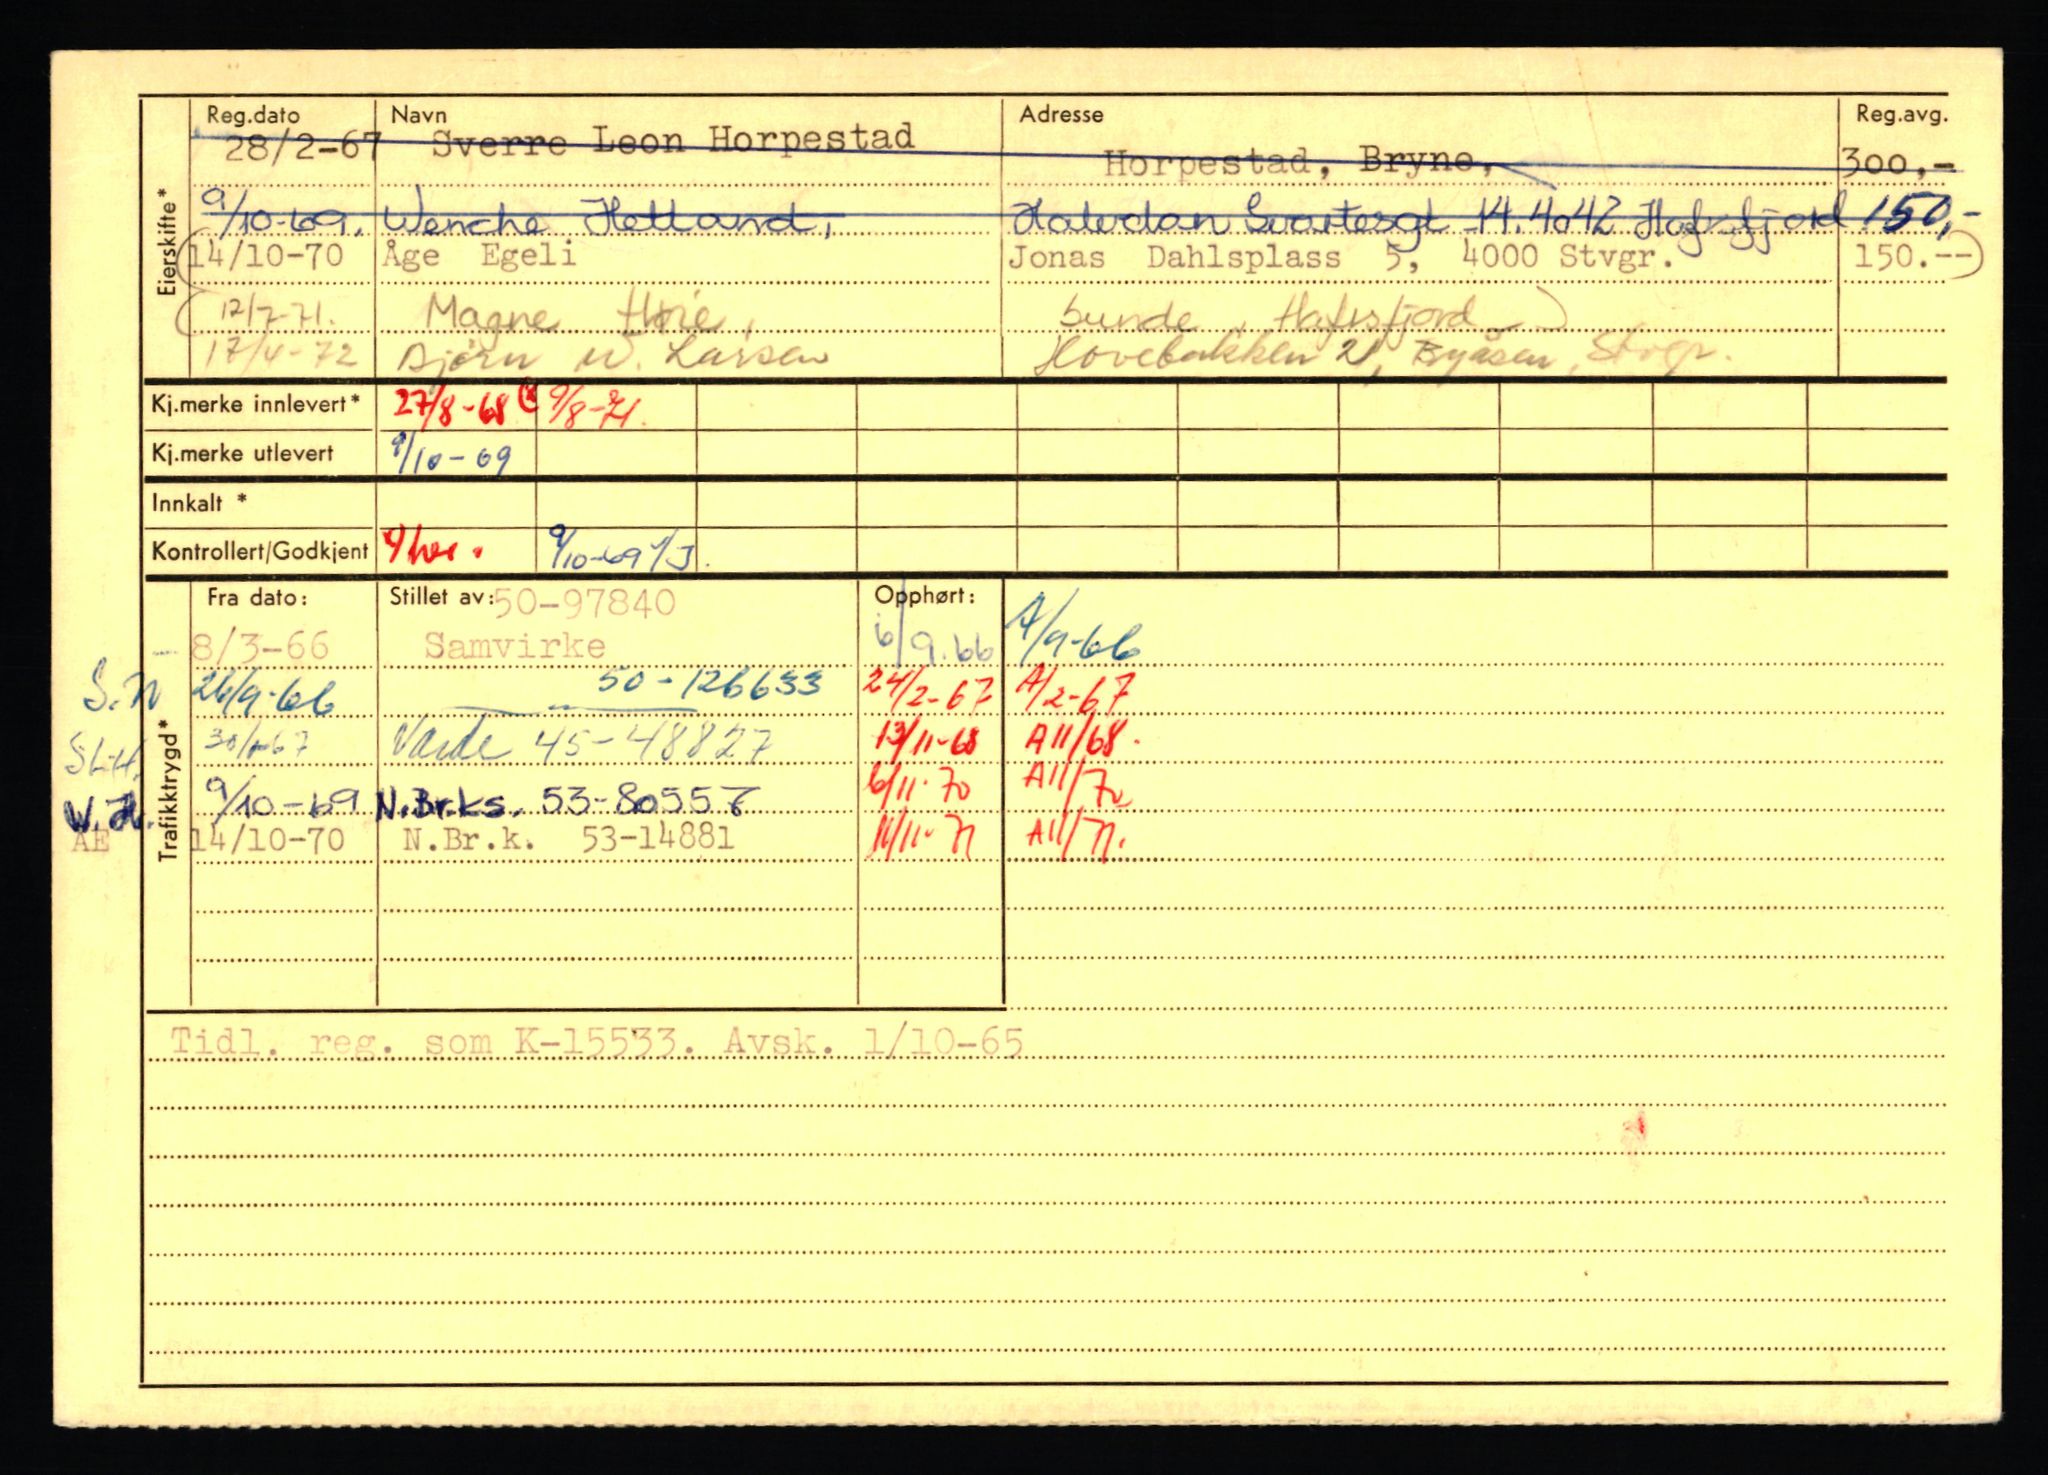 Reg.dato Navn Adresse Reg.avg.
28/2-67 Sverre Leon Horpestad Horpestad, Bryne, 300,-
9/10-69, Wenche Hetland, Halvdan Svartesgt 14. 4042 Hafrsfjord 150,-
14/10-70 Åge Egeli Jonas Dahlsplass 5, 4000 Stvgr. 150.--
12/7-71. Magne Høie, Sunde, Hafrsfjord
17/4-72 Bjørn W. Larsen Hovebakken 21, Byåsen, Stvgr.
Eierskifte*
Kj.merke innlevert* 27/8-68 9/8-71.
Kj.merke utlevert 9/10-69
Innkalt *
Kontrollert/Godkjent 9/10-69
Fra dato: Stillet av: 50-97840 Opphørt:
8/3-66 Samvirke 6/9.66 A/9-66
S.N 26/9-66 50-126633 24/2-67 A/2-67
SLH. 67 Varde 45-48827 13/11-68 A11/68.
W.H. 9/10-69 N.Br.ks. 53-80557 6/11.70 A11/70
AE 14/10-70 N.Br.k. 53-14881 11/11-71 A11/71.
Trafikktrygd*
Tidl. reg. som K-15533. Avsk. 1/10-65